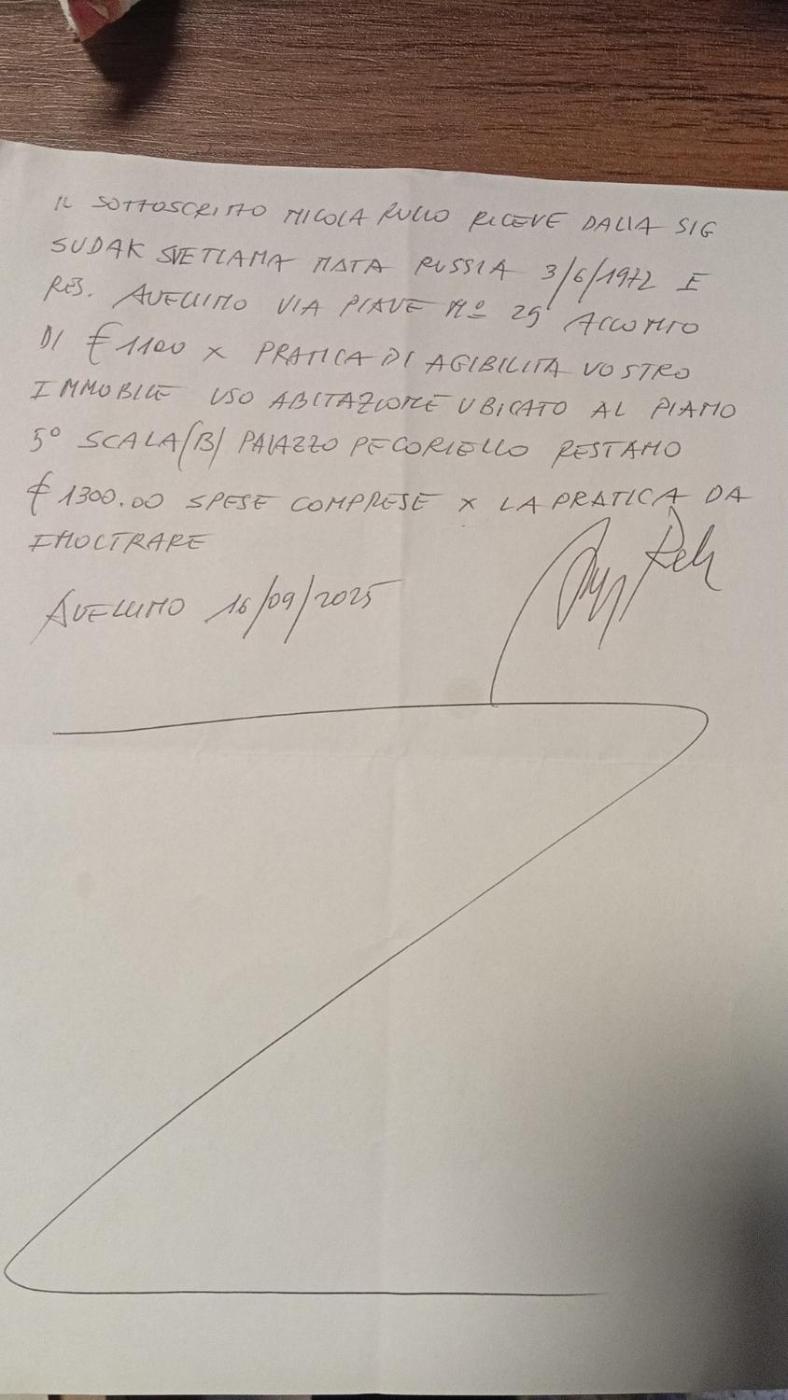 IL SOTTOSCRITTO NICOLA RULLO RICEVE DALLA SIG
SUDAK SVETLANA NATA RUSSIA 3/6/1972 E
RES. AVELLINO VIA PIAVE Nº 29 ACCONTO
DI € 1100 X PRATICA DI AGIBILITA VOSTRO
IMMOBILE USO ABITAZIONE UBICATO AL PIANO
5º SCALA (B) PALAZZO PECORIELLO RESTANO
€ 1300.00 SPESE COMPRESE X LA PRATICA DA
INOLTRARE
AVELLINO 16/09/2025